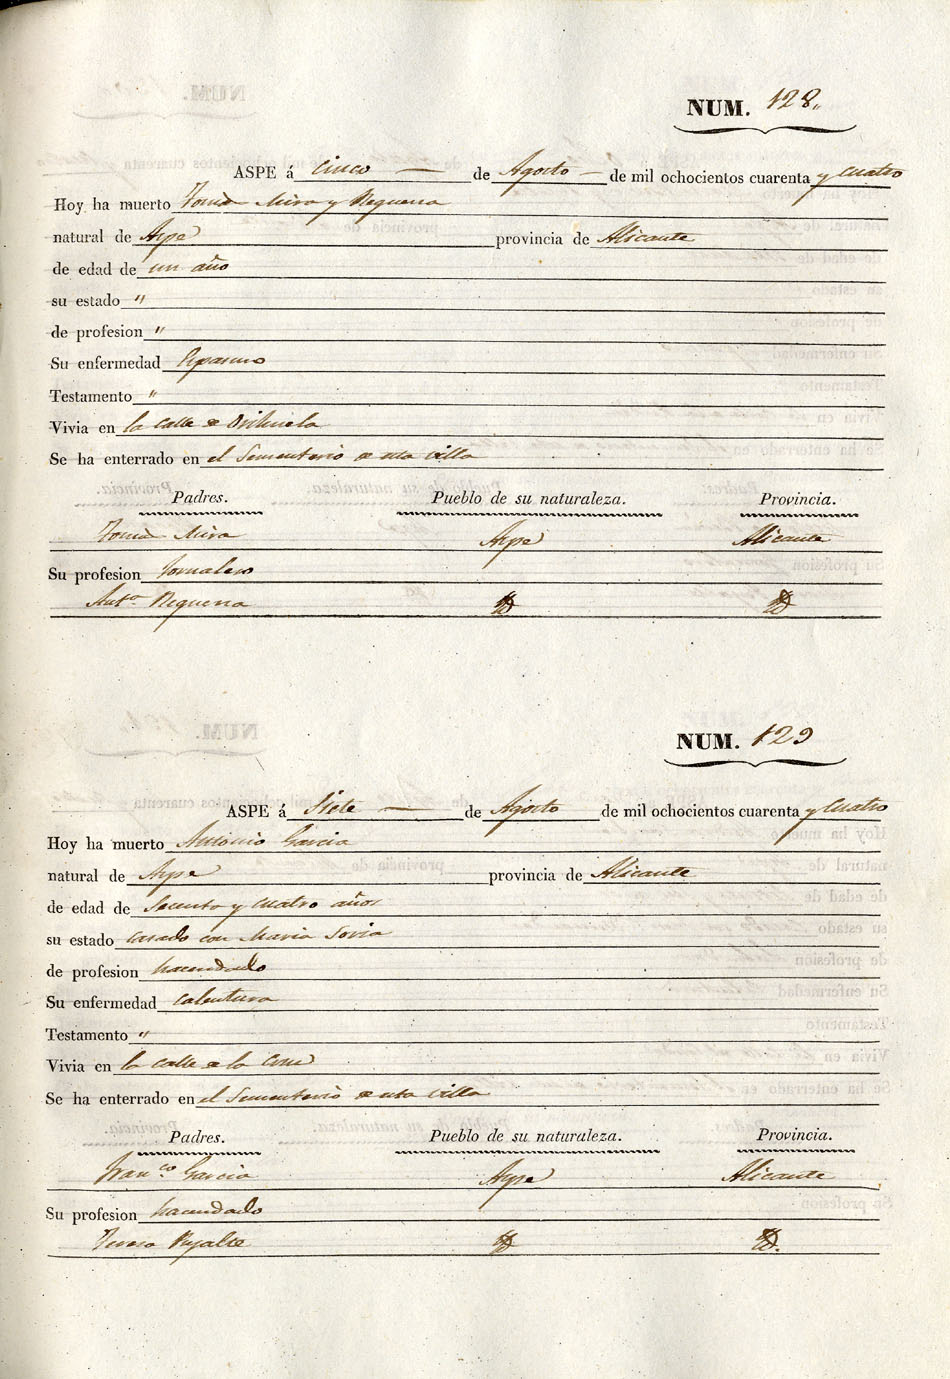 NUM. 128.
ASPE á Cinco de Agosto de mil ochocientos cuarenta y cuatro
Hoy ha muerto Tomás Mira y Requena
natural de Aspe provincia de Alicante
de edad de un año
su estado "
de profesion "
Su enfermedad Espasmo
Testamento "
Vivia en la calle de Orihuela
Se ha enterrado en el Sementerio de esta villa
Padres. Pueblo de su naturaleza. Provincia.
Tomás Mira Aspe Alicante
Su profesion Jornalero
Anta. Requena Yd Yd
NUM. 129
ASPE á Siete de Agosto de mil ochocientos cuarenta y cuatro
Hoy ha muerto Antonio Garcia
natural de Aspe provincia de Alicante
de edad de Secenta y cuatro años
su estado casado con Maria Soria
de profesion hacendado
Su enfermedad Calentura
Testamento "
Vivia en la calle de la Cruz
Se ha enterrado en el Sementerio de esta villa
Padres. Pueblo de su naturaleza. Provincia.
Franco. Garcia Aspe Alicante
Su profesion hacendado
Teresa Yd Yd.